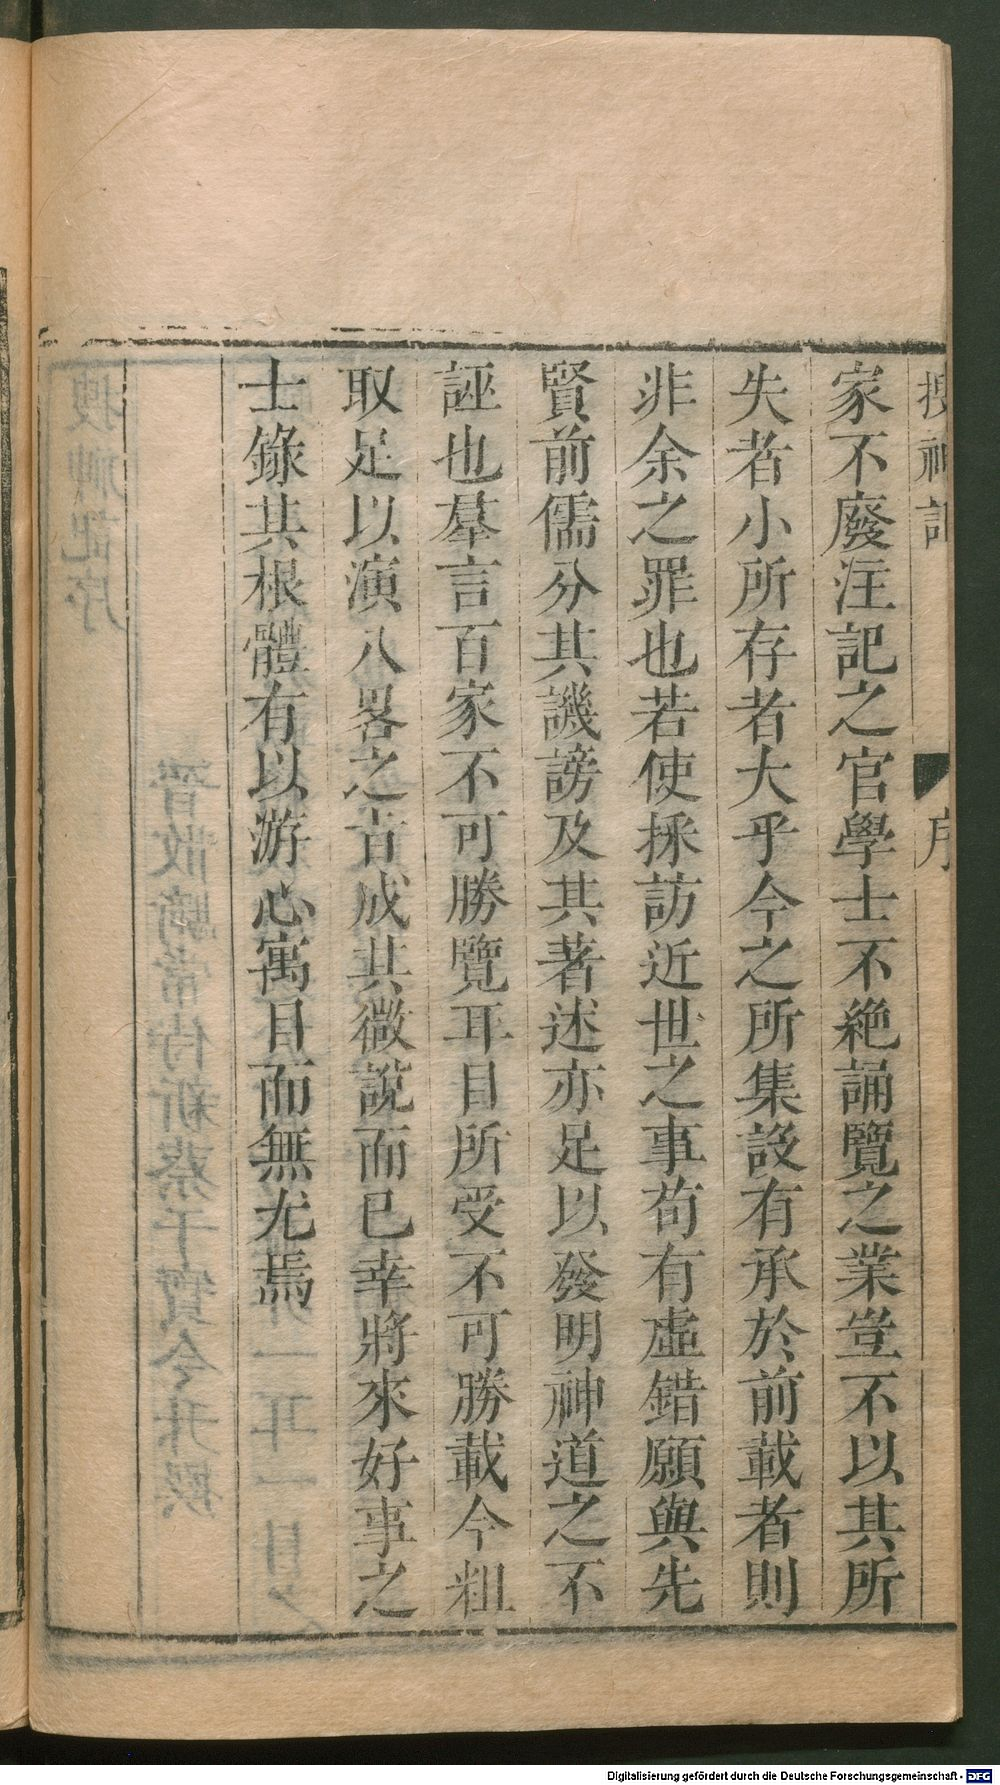 搜神記 序
家不廢注記之官學士不絶誦覽之業豈不以其所
失者小所存者大乎今之所集設有承於前載者則
非余之罪也若使採訪近世之事苟有虛錯願與先
賢前儒分其譏謗及其著述亦足以發明神道之不
誣也羣言百家不可勝覽耳目所受不可勝載今粗
取足以演八畧之旨成其微說而已幸將來好事之
士錄其根體有以游心寓目而無尤焉
Digitalisierung gefördert durch die Deutsche Forschungsgemeinschaft - DFG